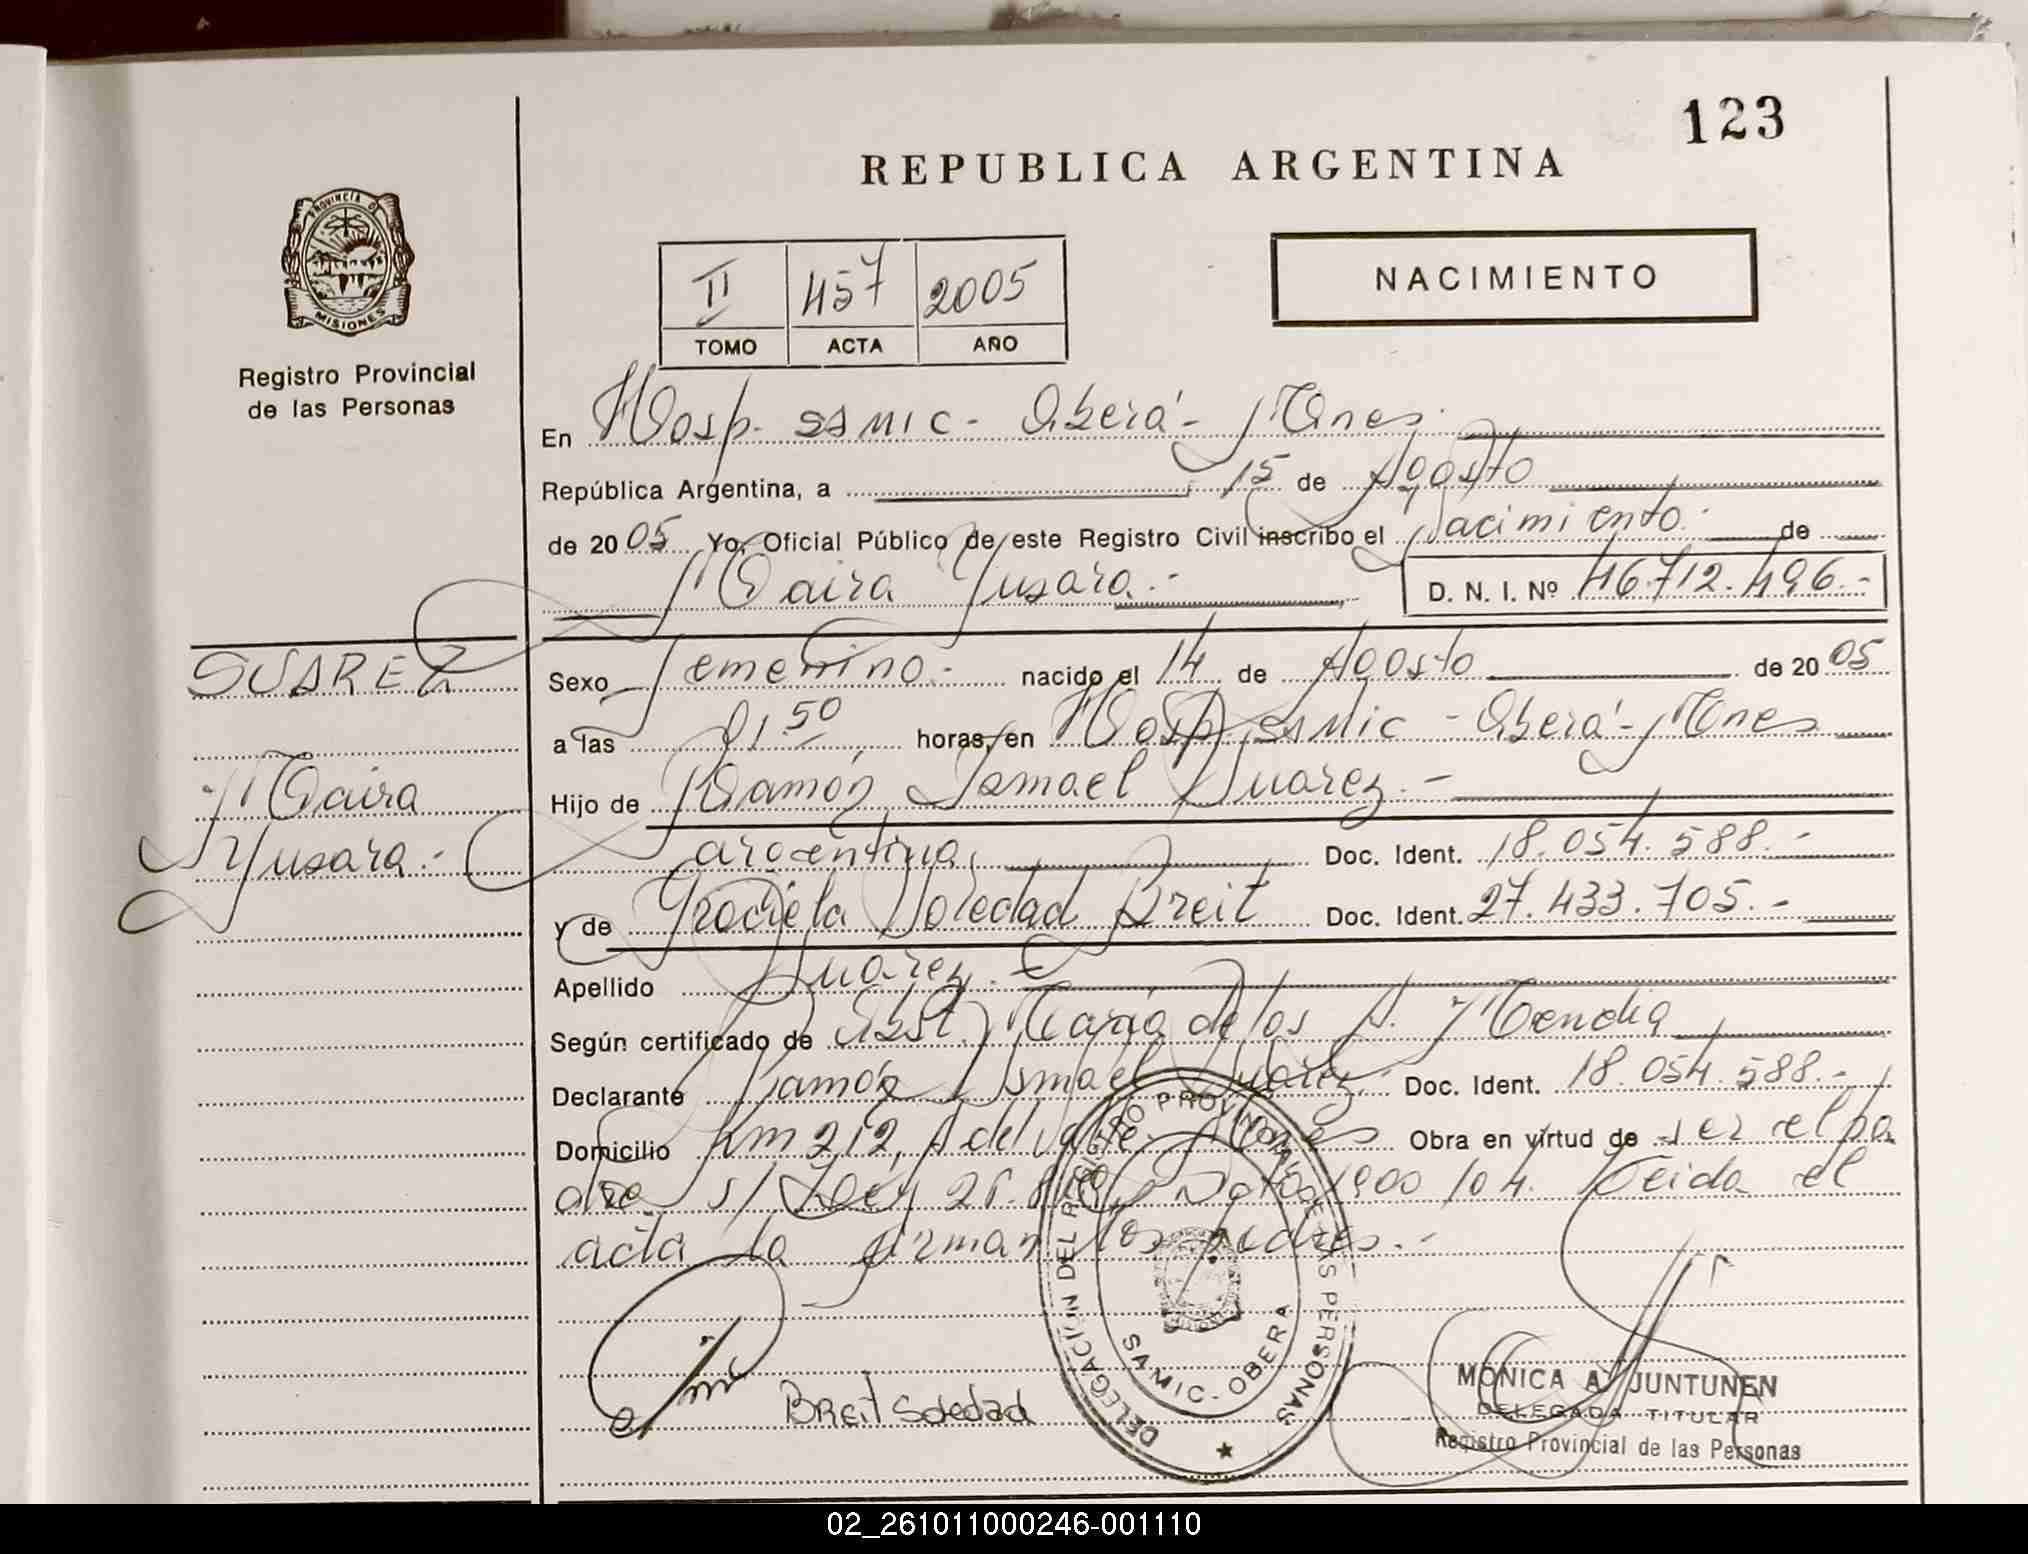 123
REPUBLICA ARGENTINA
PROVINCIA DE
MISIONES
Registro Provincial
de las Personas
II 457 2005
TOMO ACTA AÑO
NACIMIENTO
En Hosp. SAMIC - Oberá - Mnes.
República Argentina, a 15 de Agosto
de 2005 Yo, Oficial Público de este Registro Civil inscribo el Nacimiento.- de
Maira Yusara.- D. N. I. Nº 46.712.496.-
SUAREZ
Maira
Yusara.-
Sexo Femenino.- nacido el 14 de Agosto de 2005
a las 01.50 horas, en Hosp SAMIC - Oberá - Mnes
Hijo de Ramón Ismael Suarez.-
argentina, Doc. Ident. 18.054.588.-
y de Graciela Soledad Breit Doc. Ident. 27.433.705.-
Apellido Suarez.-
Según certificado de Obst. María de los A. Mendia
Declarante Ramón Ismael Suarez.- Doc. Ident. 18.054.588.-
Domicilio Km 212, A del Valle. Mnes Obra en virtud de ser el pa
dre s/ Ley 1900/04. Leida el
acta la firman los padres.-
DELEGACIÓN DEL REGISTRO PROVINCIAL DE LAS PERSONAS
SAMIC - OBERA
Breit Soledad
MONICA A. JUNTUNEN
DELEGADA TITULAR
Registro Provincial de las Personas
02_261011000246-001110